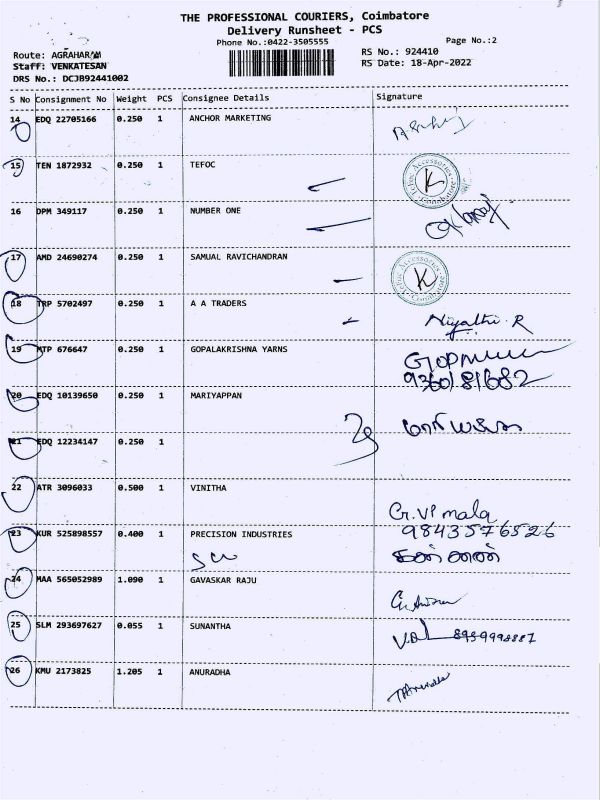 THE PROFESSIONAL COURIERS, Coimbatore
Delivery Runsheet - PCS
Phone No.:0422-3505555 Page No.:2
Route: AGRAHARAM RS No.: 924410
Staff: VENKATESAN RS Date: 18-Apr-2022
DRS No.: DCJB92441002
S No Consignment No Weight PCS Consignee Details Signature
14 EDQ 22705166 0.250 1 ANCHOR MARKETING
15 TEN 1872932 0.250 1 TEFOC Tefoc Accessories Coimbatore K
16 DPM 349117 0.250 1 NUMBER ONE
17 AMD 24690274 0.250 1 SAMUAL RAVICHANDRAN Tefoc Accessories Coimbatore K
18 TRP 5702497 0.250 1 A A TRADERS Niyathi. R
19 MTP 676647 0.250 1 GOPALAKRISHNA YARNS
9360181682
20 EDQ 10139650 0.250 1 MARIYAPPAN
21 EDQ 12234147 0.250 1
22 ATR 3096033 0.500 1 VINITHA G.Vimala
9843576526
23 KUR 525898557 0.400 1 PRECISION INDUSTRIES
24 MAA 565052989 1.090 1 GAVASKAR RAJU
25 SLM 293697627 0.055 1 SUNANTHA
26 KMU 2173825 1.205 1 ANURADHA